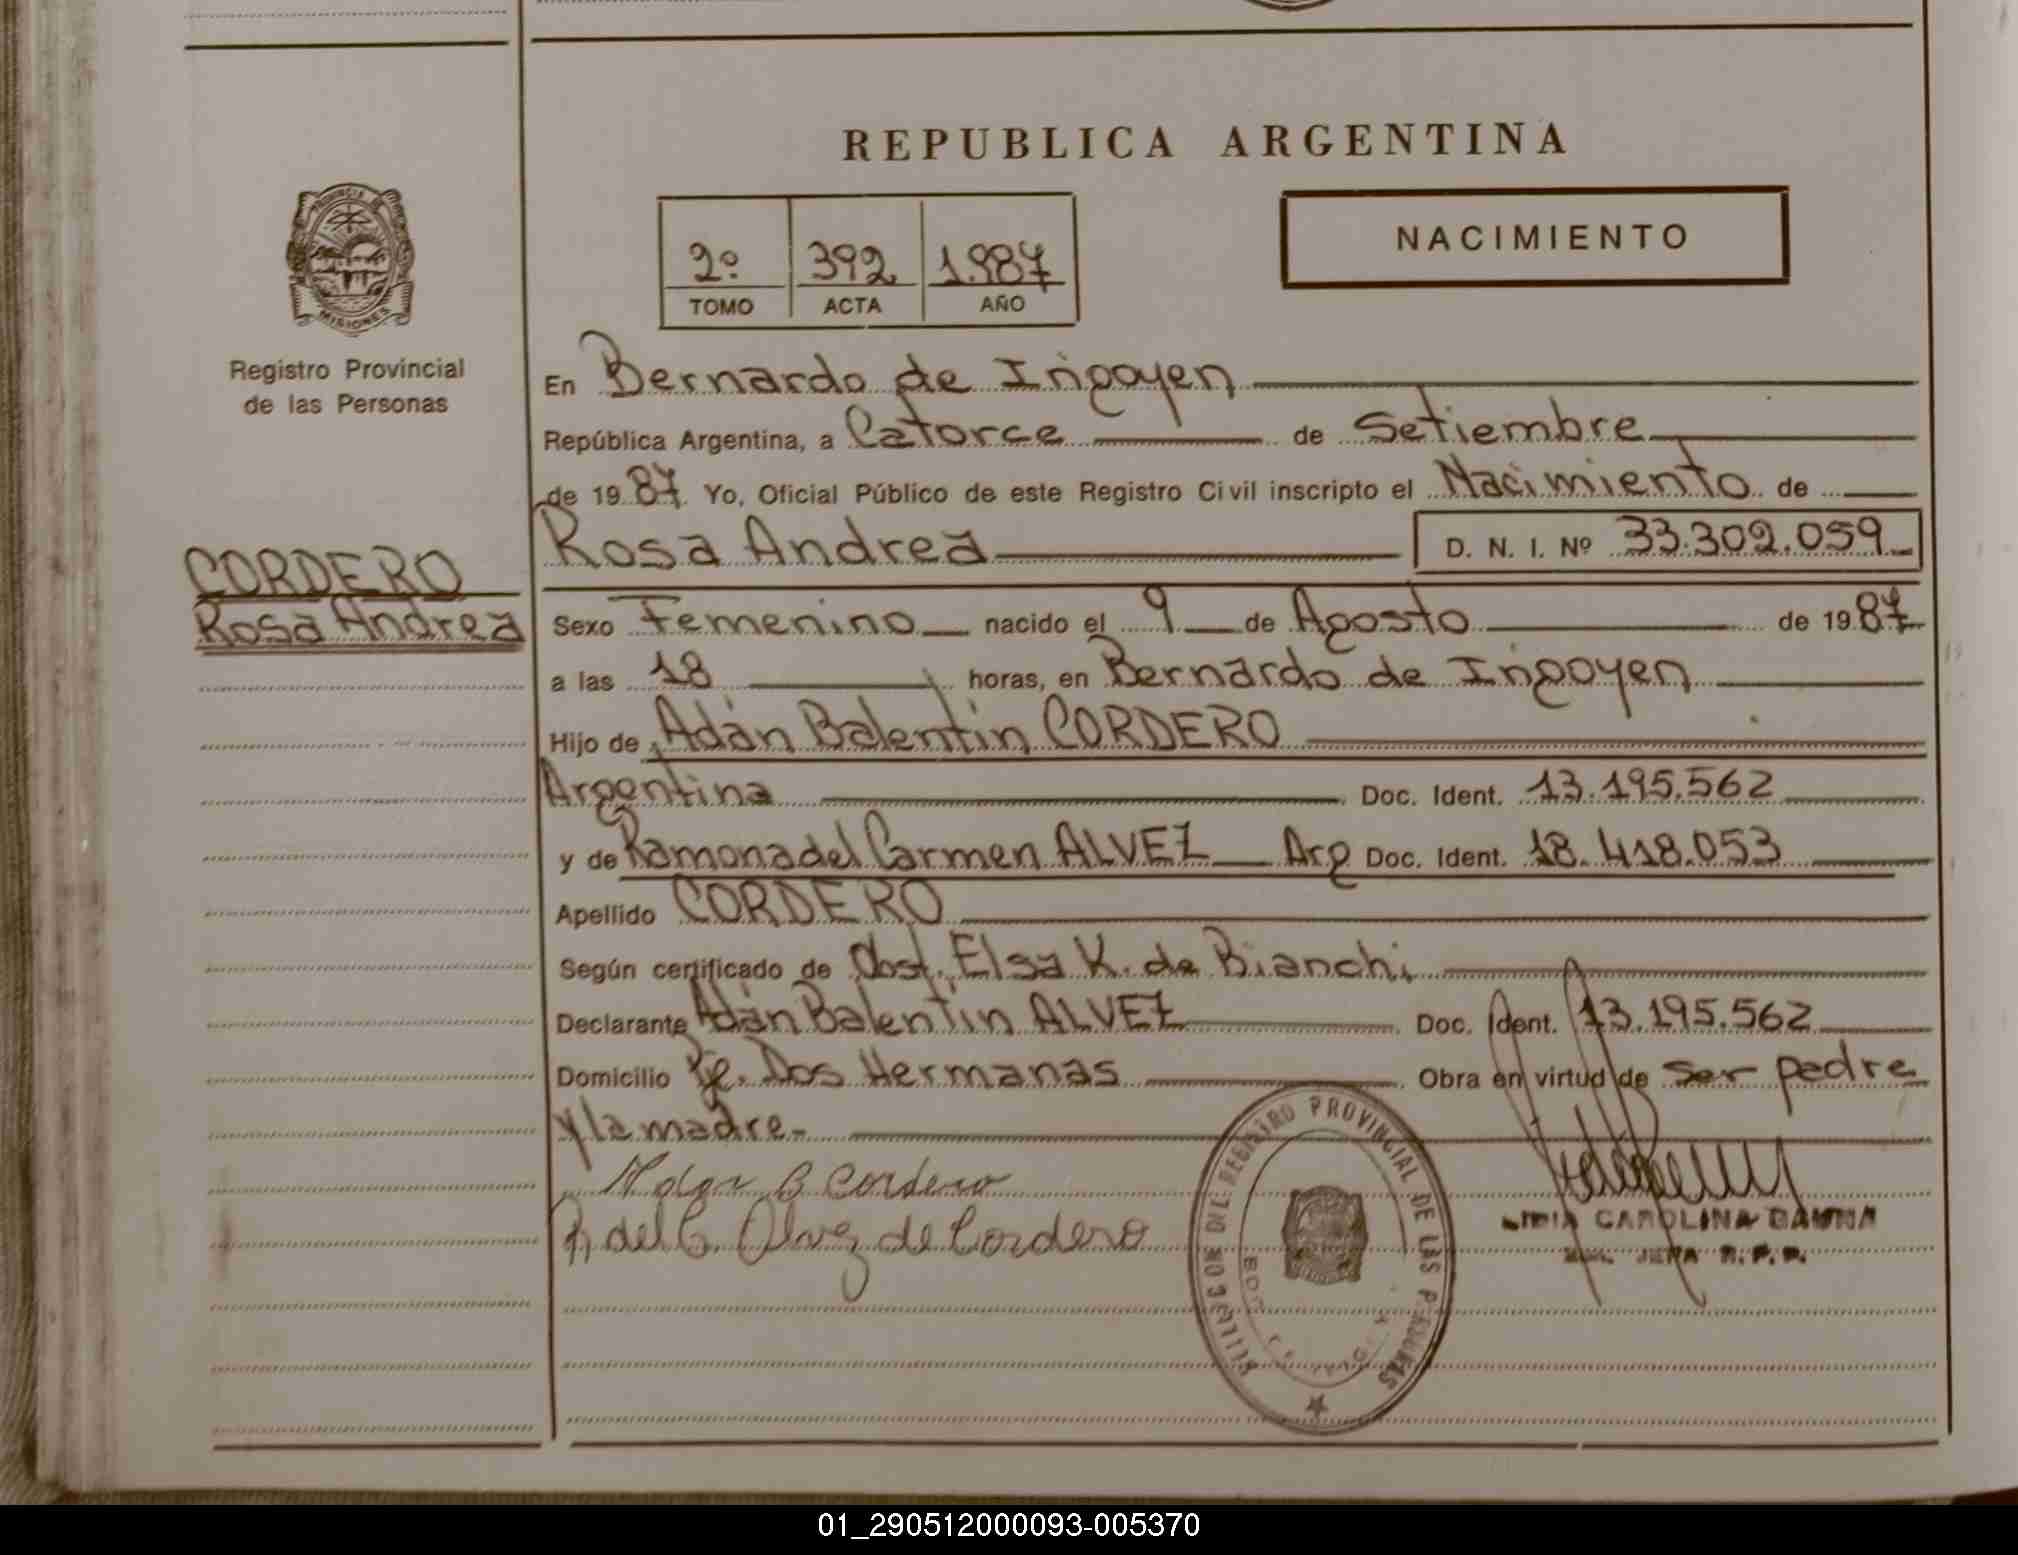 REPUBLICA ARGENTINA
PROVINCIA DE
MISIONES
Registro Provincial
de las Personas
2º 392 1.987
TOMO ACTA AÑO
NACIMIENTO
En Bernardo de Irigoyen
República Argentina, a Catorce de Setiembre
de 19 87 Yo, Oficial Público de este Registro Civil inscripto el Nacimiento de
Rosa Andrea D. N. I. Nº 33.302.059
CORDERO
Rosa Andrea
Sexo Femenino nacido el 9 de Agosto de 19 87
a las 18 horas, en Bernardo de Irigoyen
Hijo de Adán Balentín CORDERO
Argentina Doc. Ident. 13.195.562
y de Ramona del Carmen ALVEZ Arg Doc. Ident. 18.418.053
Apellido CORDERO
Según certificado de Obst. Elsa K. de Bianchi
Declarante Adán Balentín ALVEZ Doc. Ident. 13.195.562
Domicilio Pje. Dos Hermanas Obra en virtud de ser padre
y la madre-
B Cordero
R. del C. Alvez de Cordero
REGISTRO PROVINCIAL DE LAS PERSONAS
CAROLINA
JEFA R.P.P.
01_290512000093-005370